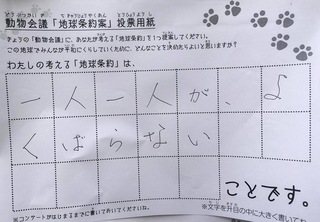 動物会議「地球条約案」投票用紙
きょうの「動物会議」に、あなたが考える「地球条約」を1つ提案してください。
この地球でみんなが平和にくらしていくために、どんなことを決めたらよいと思いますか?
わたしの考える「地球条約」は、
一人一人が、よ
くばらない
ことです。
※コンサートがはじまるまでに書いておいてくださいね。
※文字を升目の中に大きく書いてね